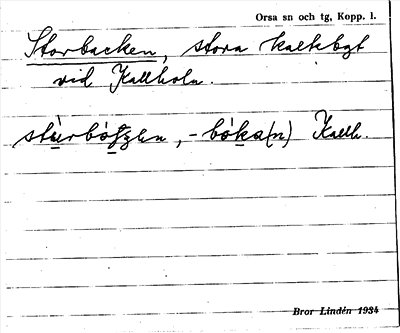 Orsa sn och tg, Kopp. l.
Storbacken, stora kalkbgt
vid Kallholn.
, - bòka(n) Kallh.
Bror Lindén 1934